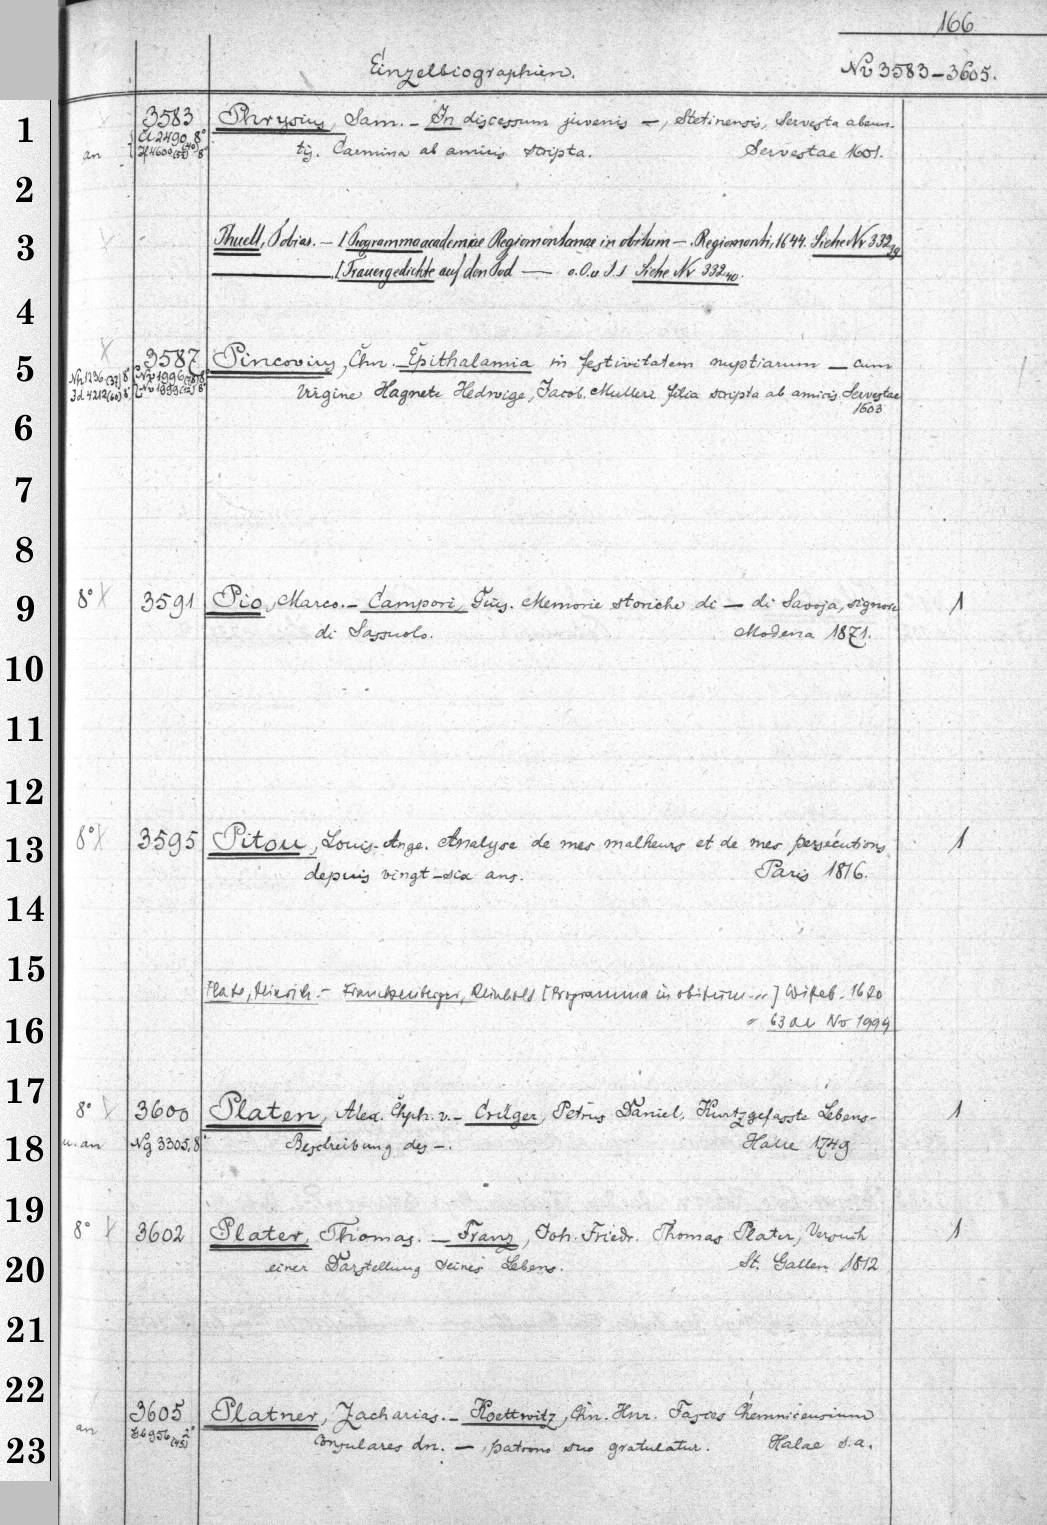 166
Einzelbiographien.
No 3583-3605.
1
3583
Phrysius, Sam. - In discessum juvenis -, Stetinensis, Servesta abeun-
an
tis. Carmina ab amicis scripta. Servestae 1601.
2
3
Thuell, Tobias. - [Programma academiae Regiomontanae in obitum - . Regiomonti, 1644. Siehe Nr 332,39
[Trauergedichte auf den Tod — o.O.u.J.] Siehe Nr 332,40.
4
5
3587
Pincovius, Chn. Epithalamia in festivitatem nuptiarum - cum
Virgine Hagnete Hedwige, Jacob. Mulleri filia scripta ab amicis Servestae
1603
6
7
8
9
8° X 3591 Pio, Marco. - Campori, Giu. Memorie storiche di - di Savoja, signore 1
di Sassuolo. Modena 1871.
10
11
12
13
8° X 3595 Pitou, Louis-Ange. Analyse de mes malheurs et de mes persécutions 1
depuis vingt-six ans. Paris 1816.
14
15
Plato, Heinrich. - Franckenberger, Reinhold [Programma in obitum ...] Witeb. 1620
16
No 1994
17
8° 3600 Platen, Alex. Chph. v. - Crüger, Petrus Daniel. Kurtzgefasste Lebens- 1
18
u. an Ng 3305, 8° Beschreibung des -. Halle 1749
19
8° 3602 Plater, Thomas. - Franz, Joh. Friedr. Thomas Plater, Versuch 1
20
einer Darstellung seines Lebens. St. Gallen 1812
21
22
3605 Platner, Zacharias. - Koettwitz, Chn. Hnr. Fasces Chemnicensium
23
an
consulares dn. -, patrono suo gratulatur. Halae s.a.